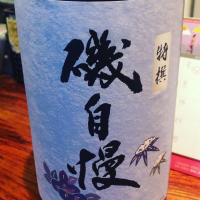 特撰
磯自慢